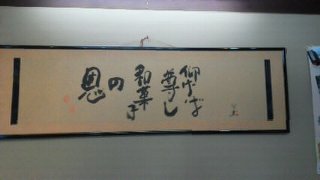 仰げば
尊し
和菓子
の
恩